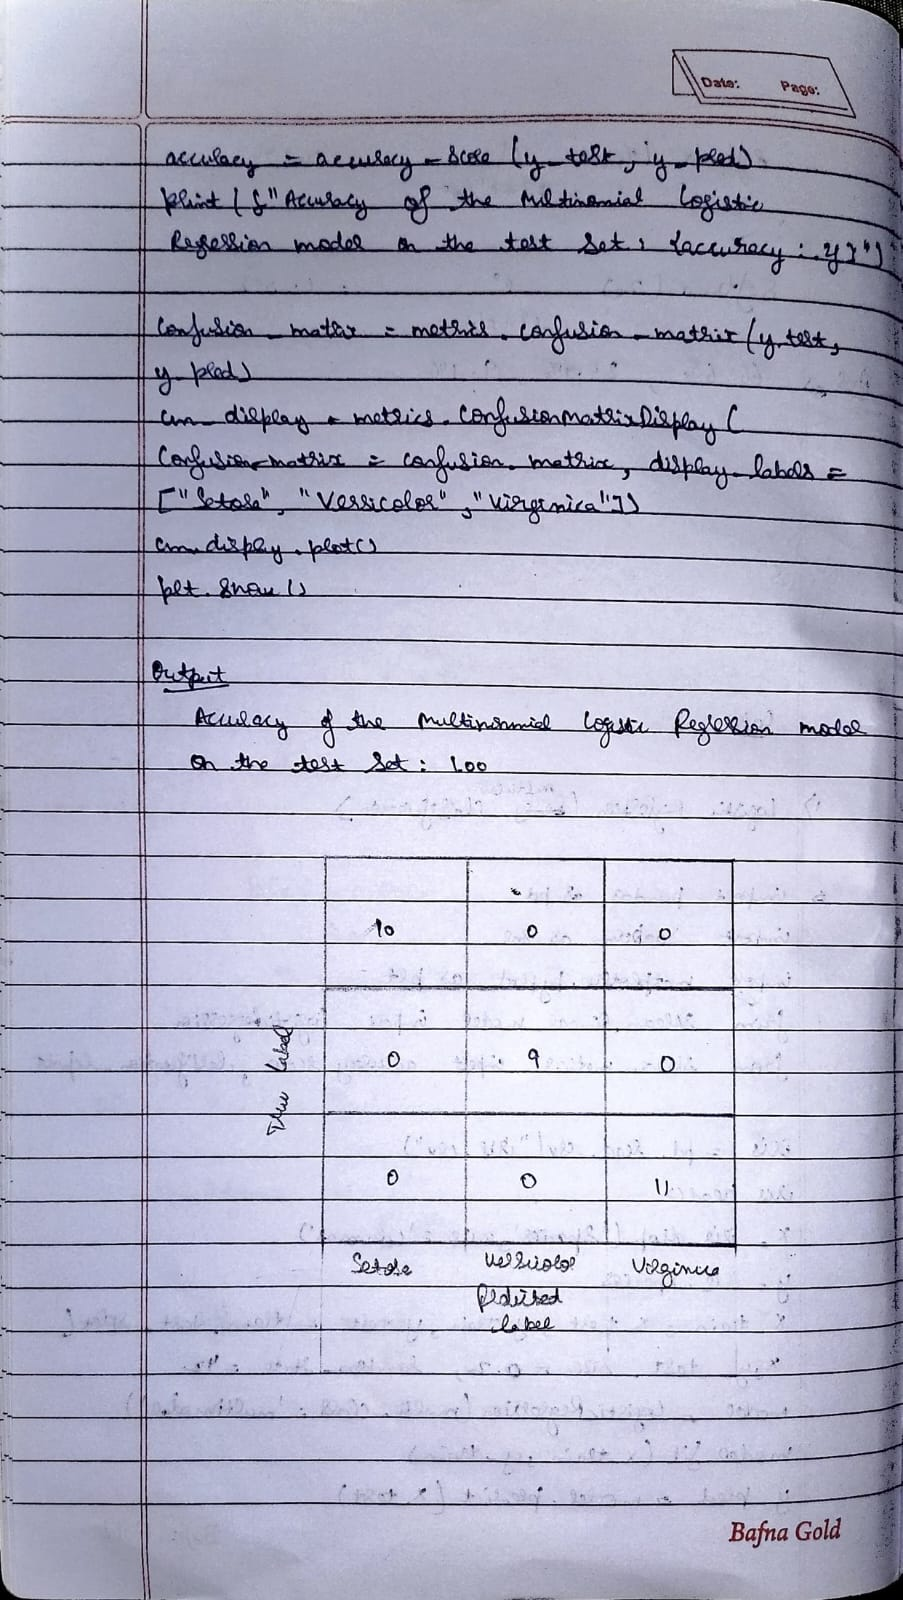 Date: Page:
accuracy = accuracy_score (y_test, y_pred)
print (f"Accuracy of the Multinomial Logistic
Regression model on the test set: {accuracy:.2f}")
Confusion_matrix = metrics.confusion_matrix (y_test,
y_pred)
cm_display = metrics.ConfusionMatrixDisplay (
Confusion_matrix = confusion_matrix, display_labels =
["Setosa", "Versicolor", "Virginica"])
cm_display.plot()
plt.show()
Output
Accuracy of the Multinomial Logistic Regression model
on the test set: 1.00
10 0 0
0 9 0
0 0 11
True Label
Setosa Versicolor Virginica
Predicted
label
Bafna Gold